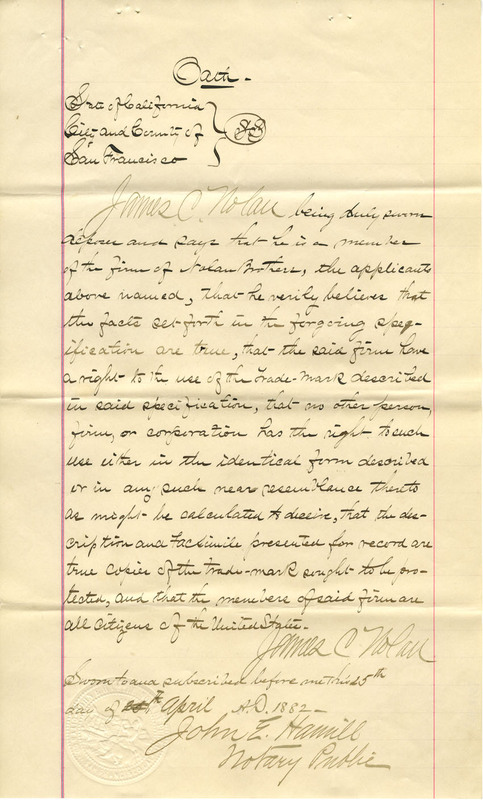 Oath -
State of California
City and County of
San Francisco
SS
James C. Nolan being duly sworn
deposes and says that he is a member
of the firm of Nolan Brothers, the applicants
above named, that he verily believes that
the facts set forth in the forgoing spec-
ification are true, that the said firm have
a right to the use of the trade-mark described
in said specification, that no other person,
firm, or corporation has the right to such
use either in the identical form described
or in any such near resemblance thereto
as might be calculated to deceive, that the des-
cription and facsimile presented for record are
true copies of the trade-mark sought to be pro-
tected, and that the members of said firm are
all citizens of the United States -
James C Nolan
Sworn to and subscribed before me this 25th
day of April A.D. 1882 -
John E. Hamill
Notary Public